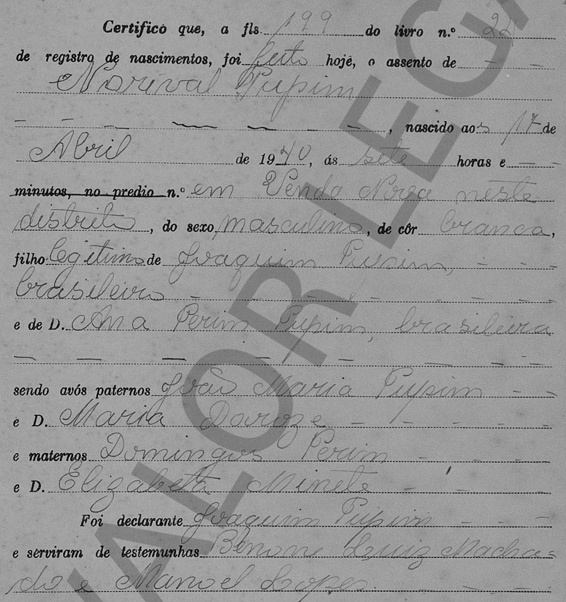 Certifico que, a fls. 199 do livro n.º 22
de registro de nascimentos, foi feito hoje, o assento de - -
Norival Pupim
- - - - - - - , nascido aos 17 de
Abril de 1940, ás sete horas e - -
minutos, no predio n.º em Venda Nova neste
distrito, do sexo masculino, de côr branca,
filho legitimo de Joaquim Pupim, - - -
brasileiro - - - - - -
e de D. Ana Perim Pupim, brasileira
- - - - - - - - -
sendo avós paternos João Maria Pupim - -
e D. Maria Daroze - - - - -
e maternos Domingos Perim - - -
e D. Elizabeta Minete - - - -
Foi declarante Joaquim Pupim - - -
e serviram de testemunhas Benoni Luiz Macha-
do e Manoel Lopes - - - -
VALOR LEGA